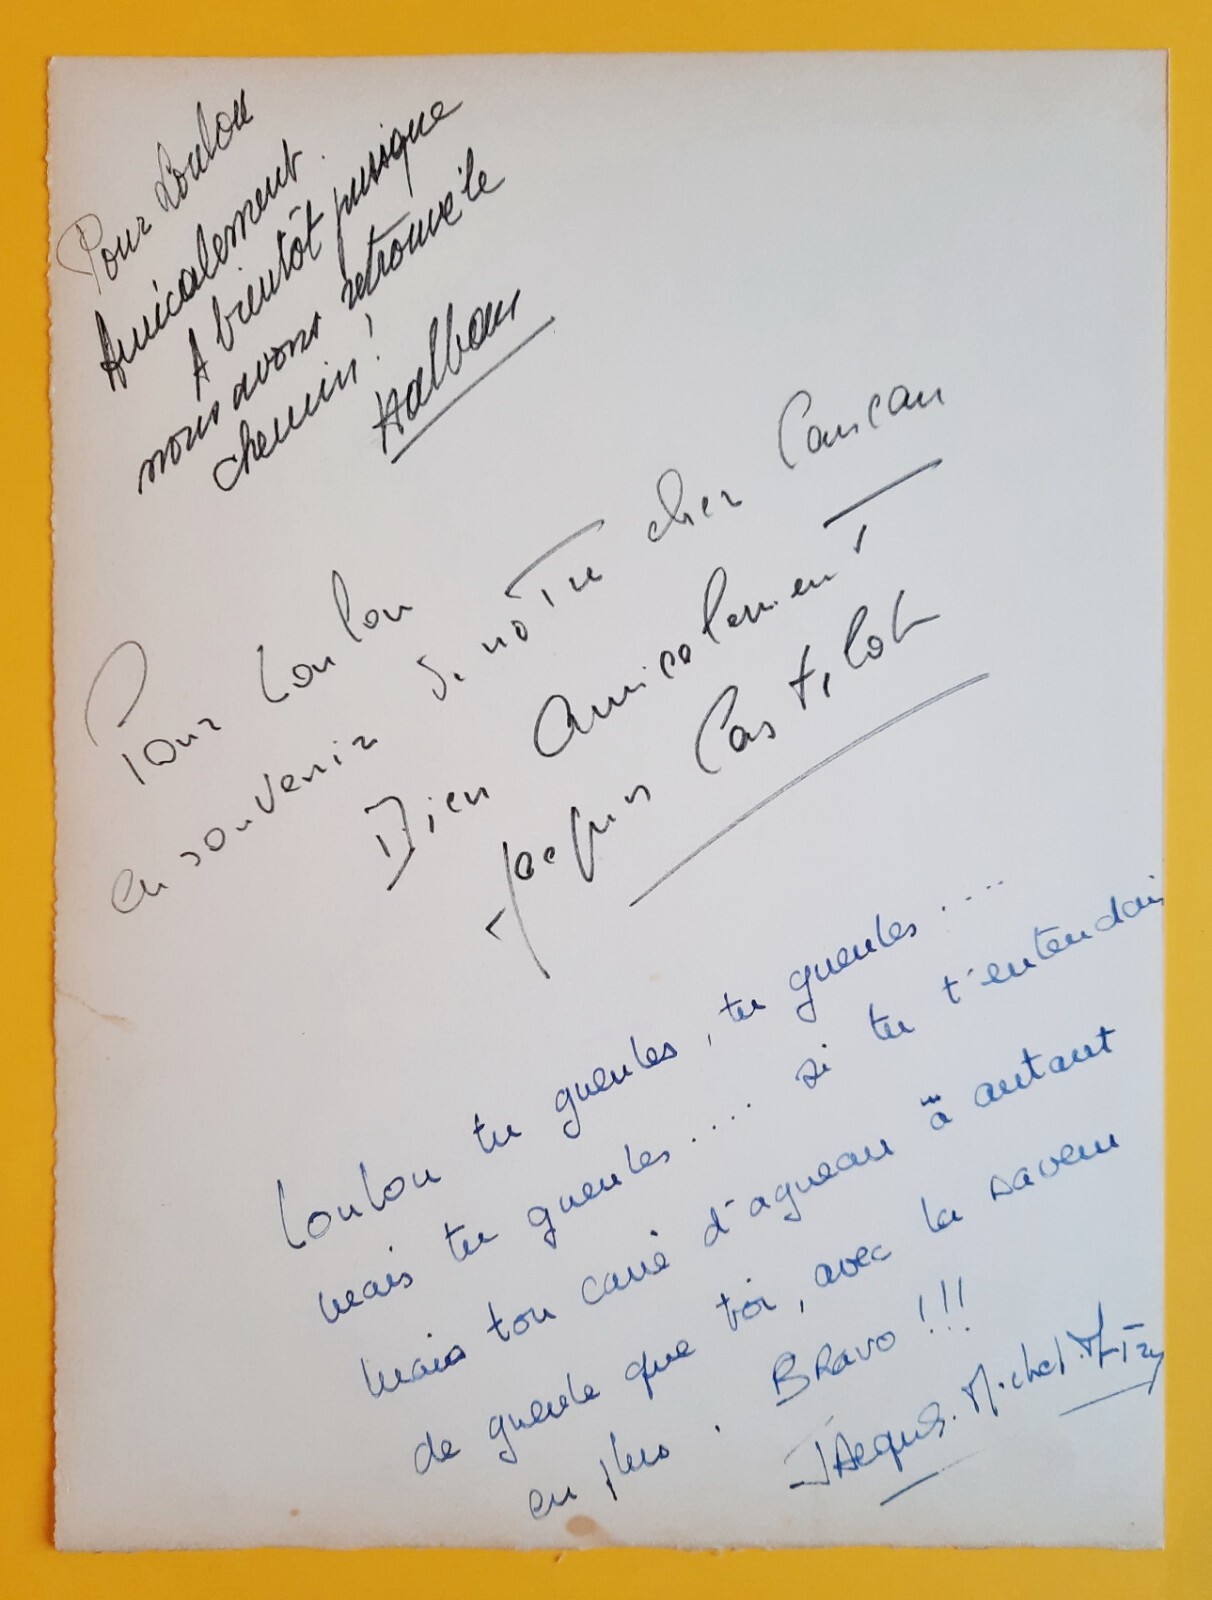 Pour Loulou
Amicalement.
A bientôt puisque
nous avons retrouvé le
chemin!
Pour Loulou
en souvenir de notre cher Cancan
Bien Amicalement
Jacques Castelot
Loulou tu gueules, tu gueules....
mais tu gueules.... si tu t'entendais
mais ton carré d'agneau à autant
de gueule que toi, avec la saveur
en plus. BRAVO!!!
JAcques. Michel.